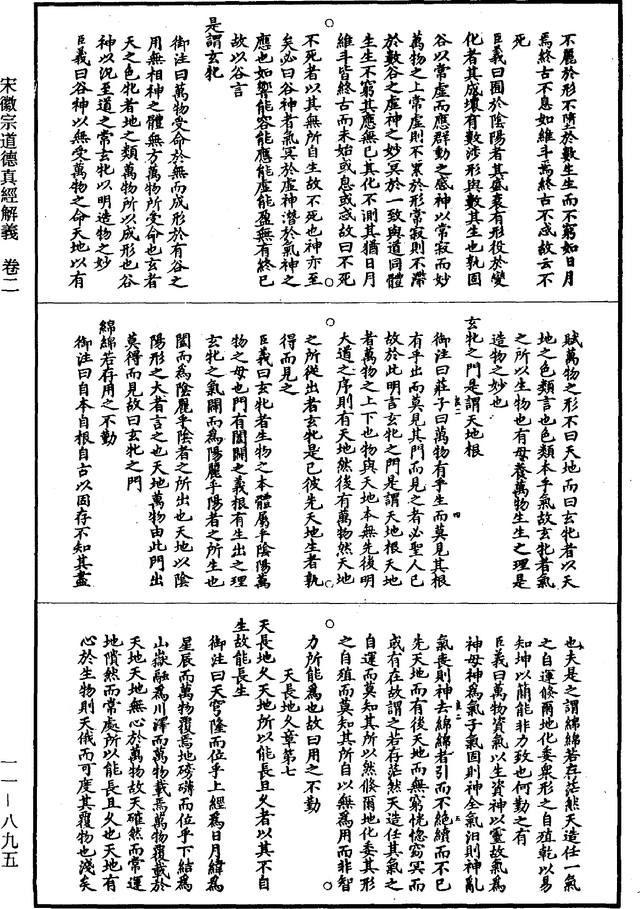 宋徽宗道德真經解義　卷二
一一－八九五
不麗於形不墮於數生生而不窮如日月
焉終古不息如維斗焉終古不忒故云不
死
臣義曰囿於陰陽者其盛衰有形役於變
化者其成壞有數涉形與數其生也孰固
谷以常虛而應群動之感神以常寂而妙
萬物之上常虛則不累於形常寂則不滯
於數谷之虛神之妙冥於一致與道同體
生生不窮其應無已其化不測其猶日月
維斗皆終古而未始或息或忒故曰不死
不死者以其無所自生故不死也神亦至
矣必曰谷神者氣冥於虛神潛於氣神之
應也如響能容能應能虛能盈無有終已
故以谷言
是謂玄牝
御注曰萬物受命於無而成形於有谷之
用無相神之體無方萬物所受命也玄者
天之色牝者地之類萬物所以成形也谷
神以況至道之常玄牝以明造物之妙
臣義曰谷神以無受萬物之命天地以有
賦萬物之形不曰天地而曰玄牝者以天
地之色類言也色類本乎氣故玄牝者氣
之所以生物也有母養萬物生生之理是
造物之妙也
玄牝之門是謂天地根
御注曰莊子曰萬物有乎生而莫見其根
有乎出而莫見其門而見之者必聖人已
故於此明言玄牝之門是謂天地根天地
者萬物之上下也物與天地本無先後明
大道之序則有天地然後有萬物然天地
之所從出者玄牝是已彼先天地生者孰
得而見之
臣義曰玄牝者生物之本體屬乎陰陽萬
物之母也門有闔開之義根有生出之理
玄牝之氣開而為陽麗乎陽者之所生也
闔而為陰麗乎陰者之所出也天地以陰
陽形之大者言之也天地萬物由此門出
莫得而見故曰玄牝之門
綿綿若存用之不勤
御注曰自本自根自古以固存不知其盡
也夫是之謂綿綿若存茫然天造任一氣
之自運倏爾地化委衆形之自殖乾以易
知坤以簡能非力致也何勤之有
臣義曰萬物資氣以生資神以靈故氣為
神母神為氣子氣固則神全氣汨則神亂
氣喪則神去綿綿者引而不絕續而不已
先天地而有後天地而無窮恍惚窈冥而
或有在故謂之若存茫然天造任其氣之
自運而莫知其所以然倏爾地化委其形
之自殖而莫知其所自以無為用而非智
力所能為也故曰用之不勤
天長地久章第七
天長地久天地所以能長且久者以其不自
生故能長生
御注曰天穹隆而位乎上經為日月緯為
星辰而萬物覆焉地磅礴而位乎下結為
山嶽融為川澤而萬物載焉萬物覆載於
天地天地無心於萬物故天確然而常運
地隤然而常處所以能長且久也天地有
心於生物則天俄而可度其覆物也淺矣